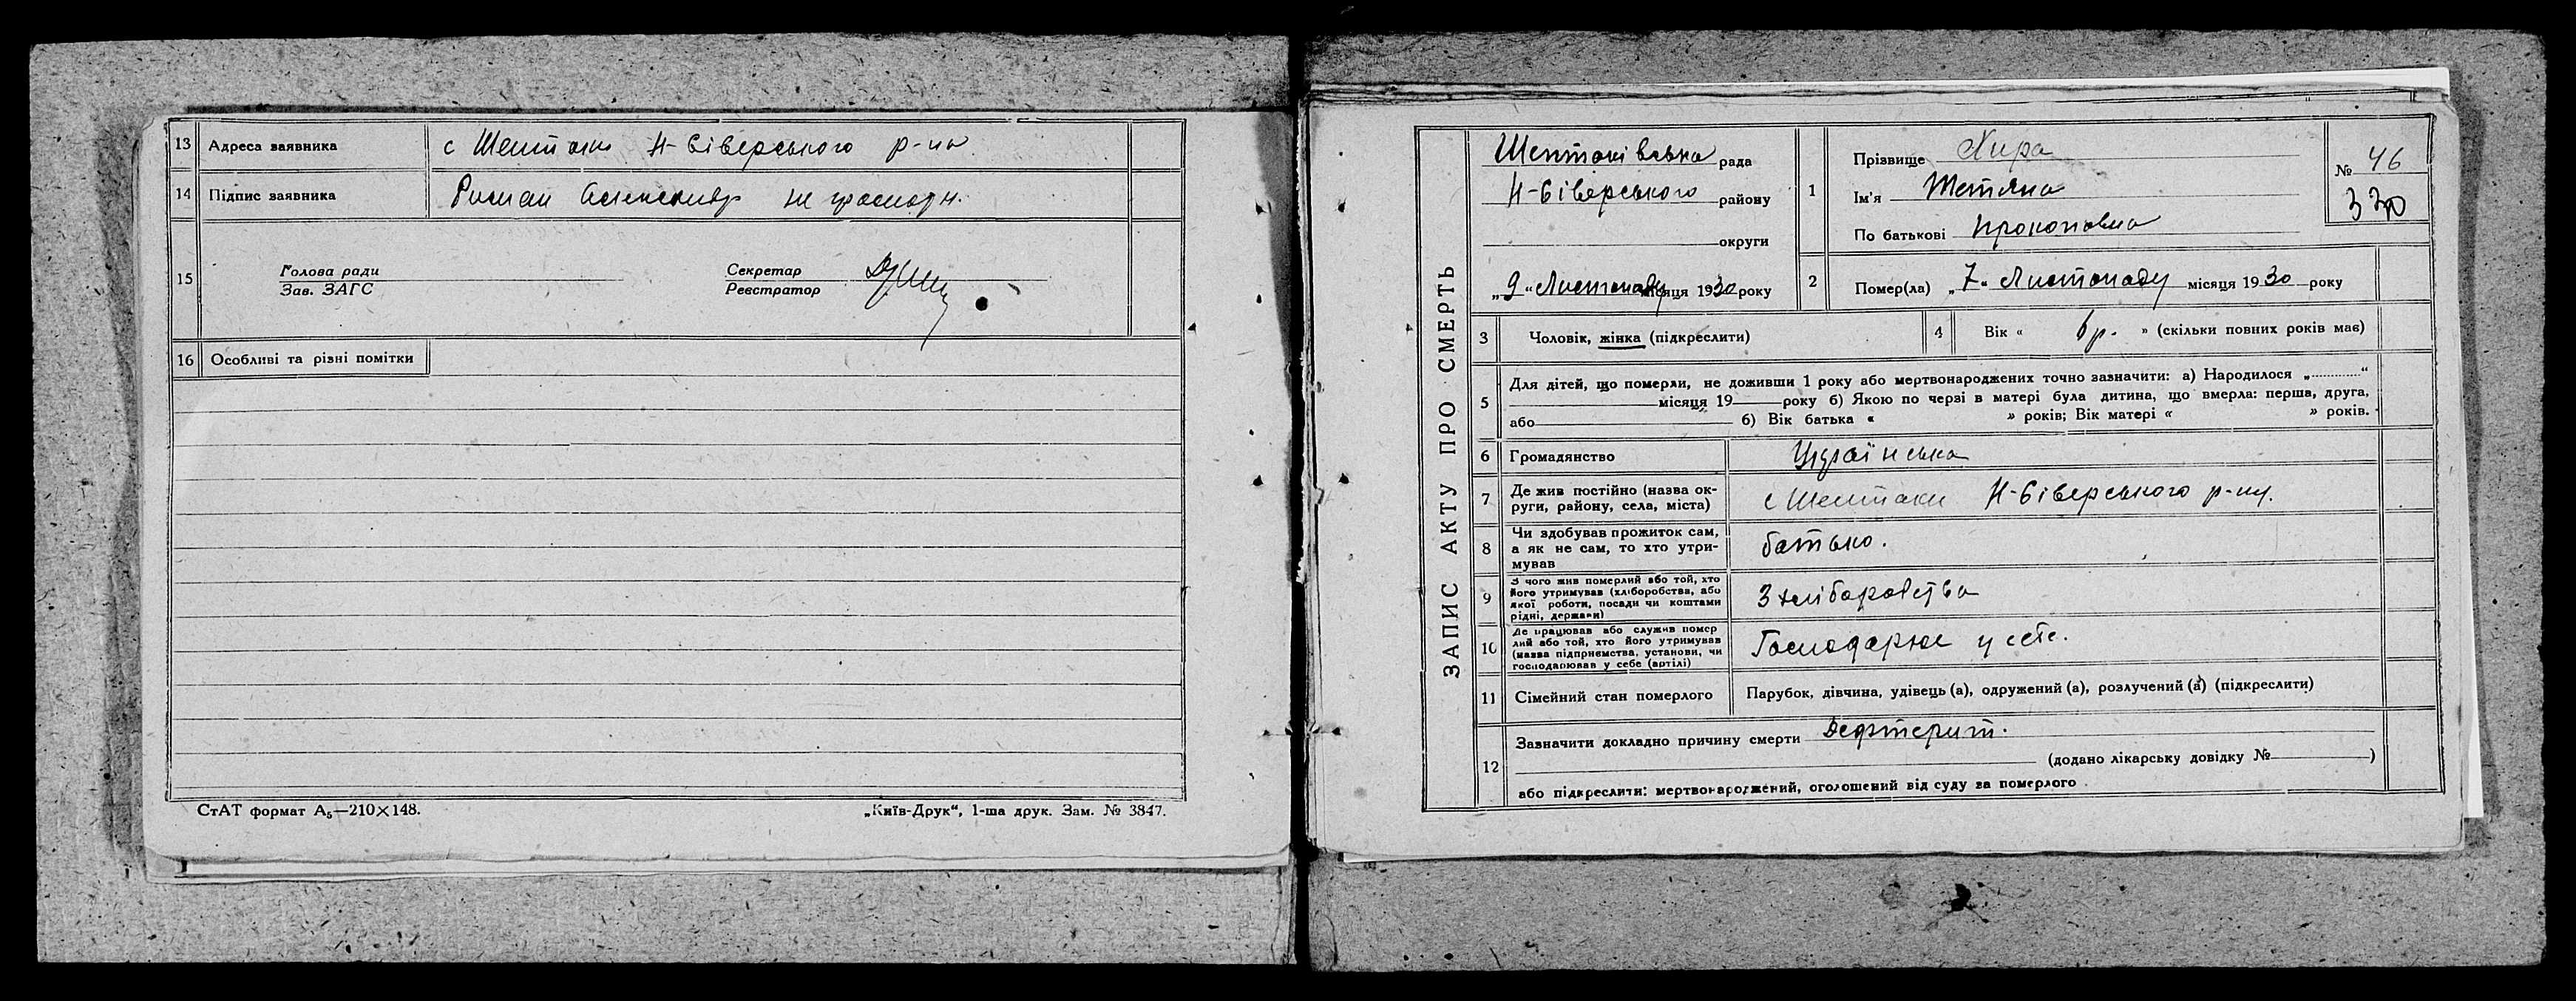 13 Адреса заявника с Шептаки Н-Сіверського р-на
14 Підпис заявника Роман не грамотн.
15 Голова ради Секретар
Зав. ЗАГС Реєстратор
16 Особливі та різні помітки
СтАТ формат А₅—210×148. „Київ-Друк“, 1-ша друк. Зам. № 3847.
ЗАПИС АКТУ ПРО СМЕРТЬ
Шептаківська рада
Н-Сіверського району
округи
„9“ Листопаду місяця 1930 року
1 Прізвище Хира
Ім'я Тетяна
По батькові Прокоповна
№ 46
330
2 Помер(ла) „7“ Листопаду місяця 1930 року
3 Чоловік, жінка (підкреслити)
4 Вік « 6 р. » (скільки повних років має)
5 Для дітей, що померли, не доживши 1 року або мертвонароджених точно зазначити: а) Народилося „ “
місяця 19 року б) Якою по черзі в матері була дитина, що вмерла: перша, друга,
або б) Вік батька « » років; Вік матері « » років.
6 Громадянство Українська
7 Де жив постійно (назва ок-
руги, району, села, міста) с Шептаки Н-Сіверського р-ну.
8 Чи здобував прожиток сам,
а як не сам, то хто утри-
мував батько.
9 З чого жив померлий або той, хто
його утримував (хліборобства, або
якої роботи, посади чи коштами
рідні, держави) З хліборобства
10 Де працював або служив помер
лий або той, хто його утримував
(назва підприємства, установи, чи
господарював у себе (артілі) Господарює у себе.
11 Сімейний стан померлого Парубок, дівчина, удівець (а), одружений (а), розлучений (а) (підкреслити)
12 Зазначити докладно причину смерти Дефтерит.
(додано лікарську довідку № )
або підкреслити: мертвонароджений, оголошений від суду за померлого